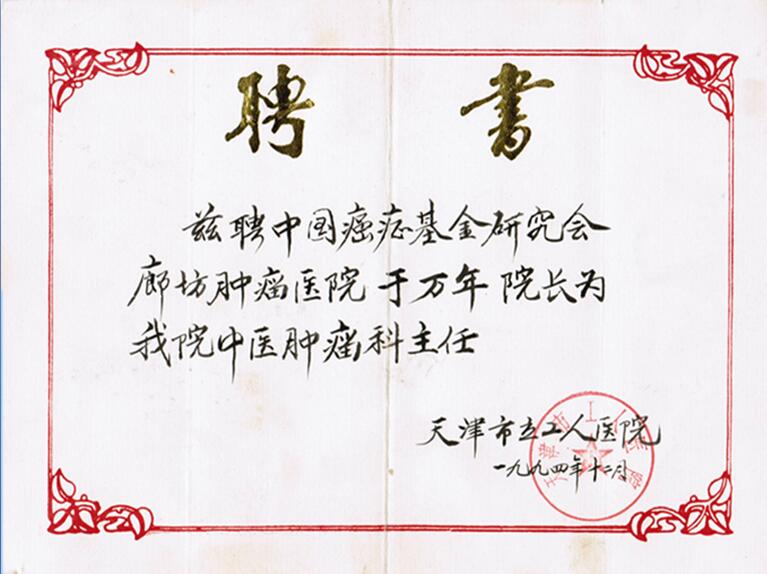 聘书
兹聘中国癌症基金研究会
廊坊肿瘤医院 于万年 院长为
我院中医肿瘤科主任
天津市立工人医院
一九九四年十二月